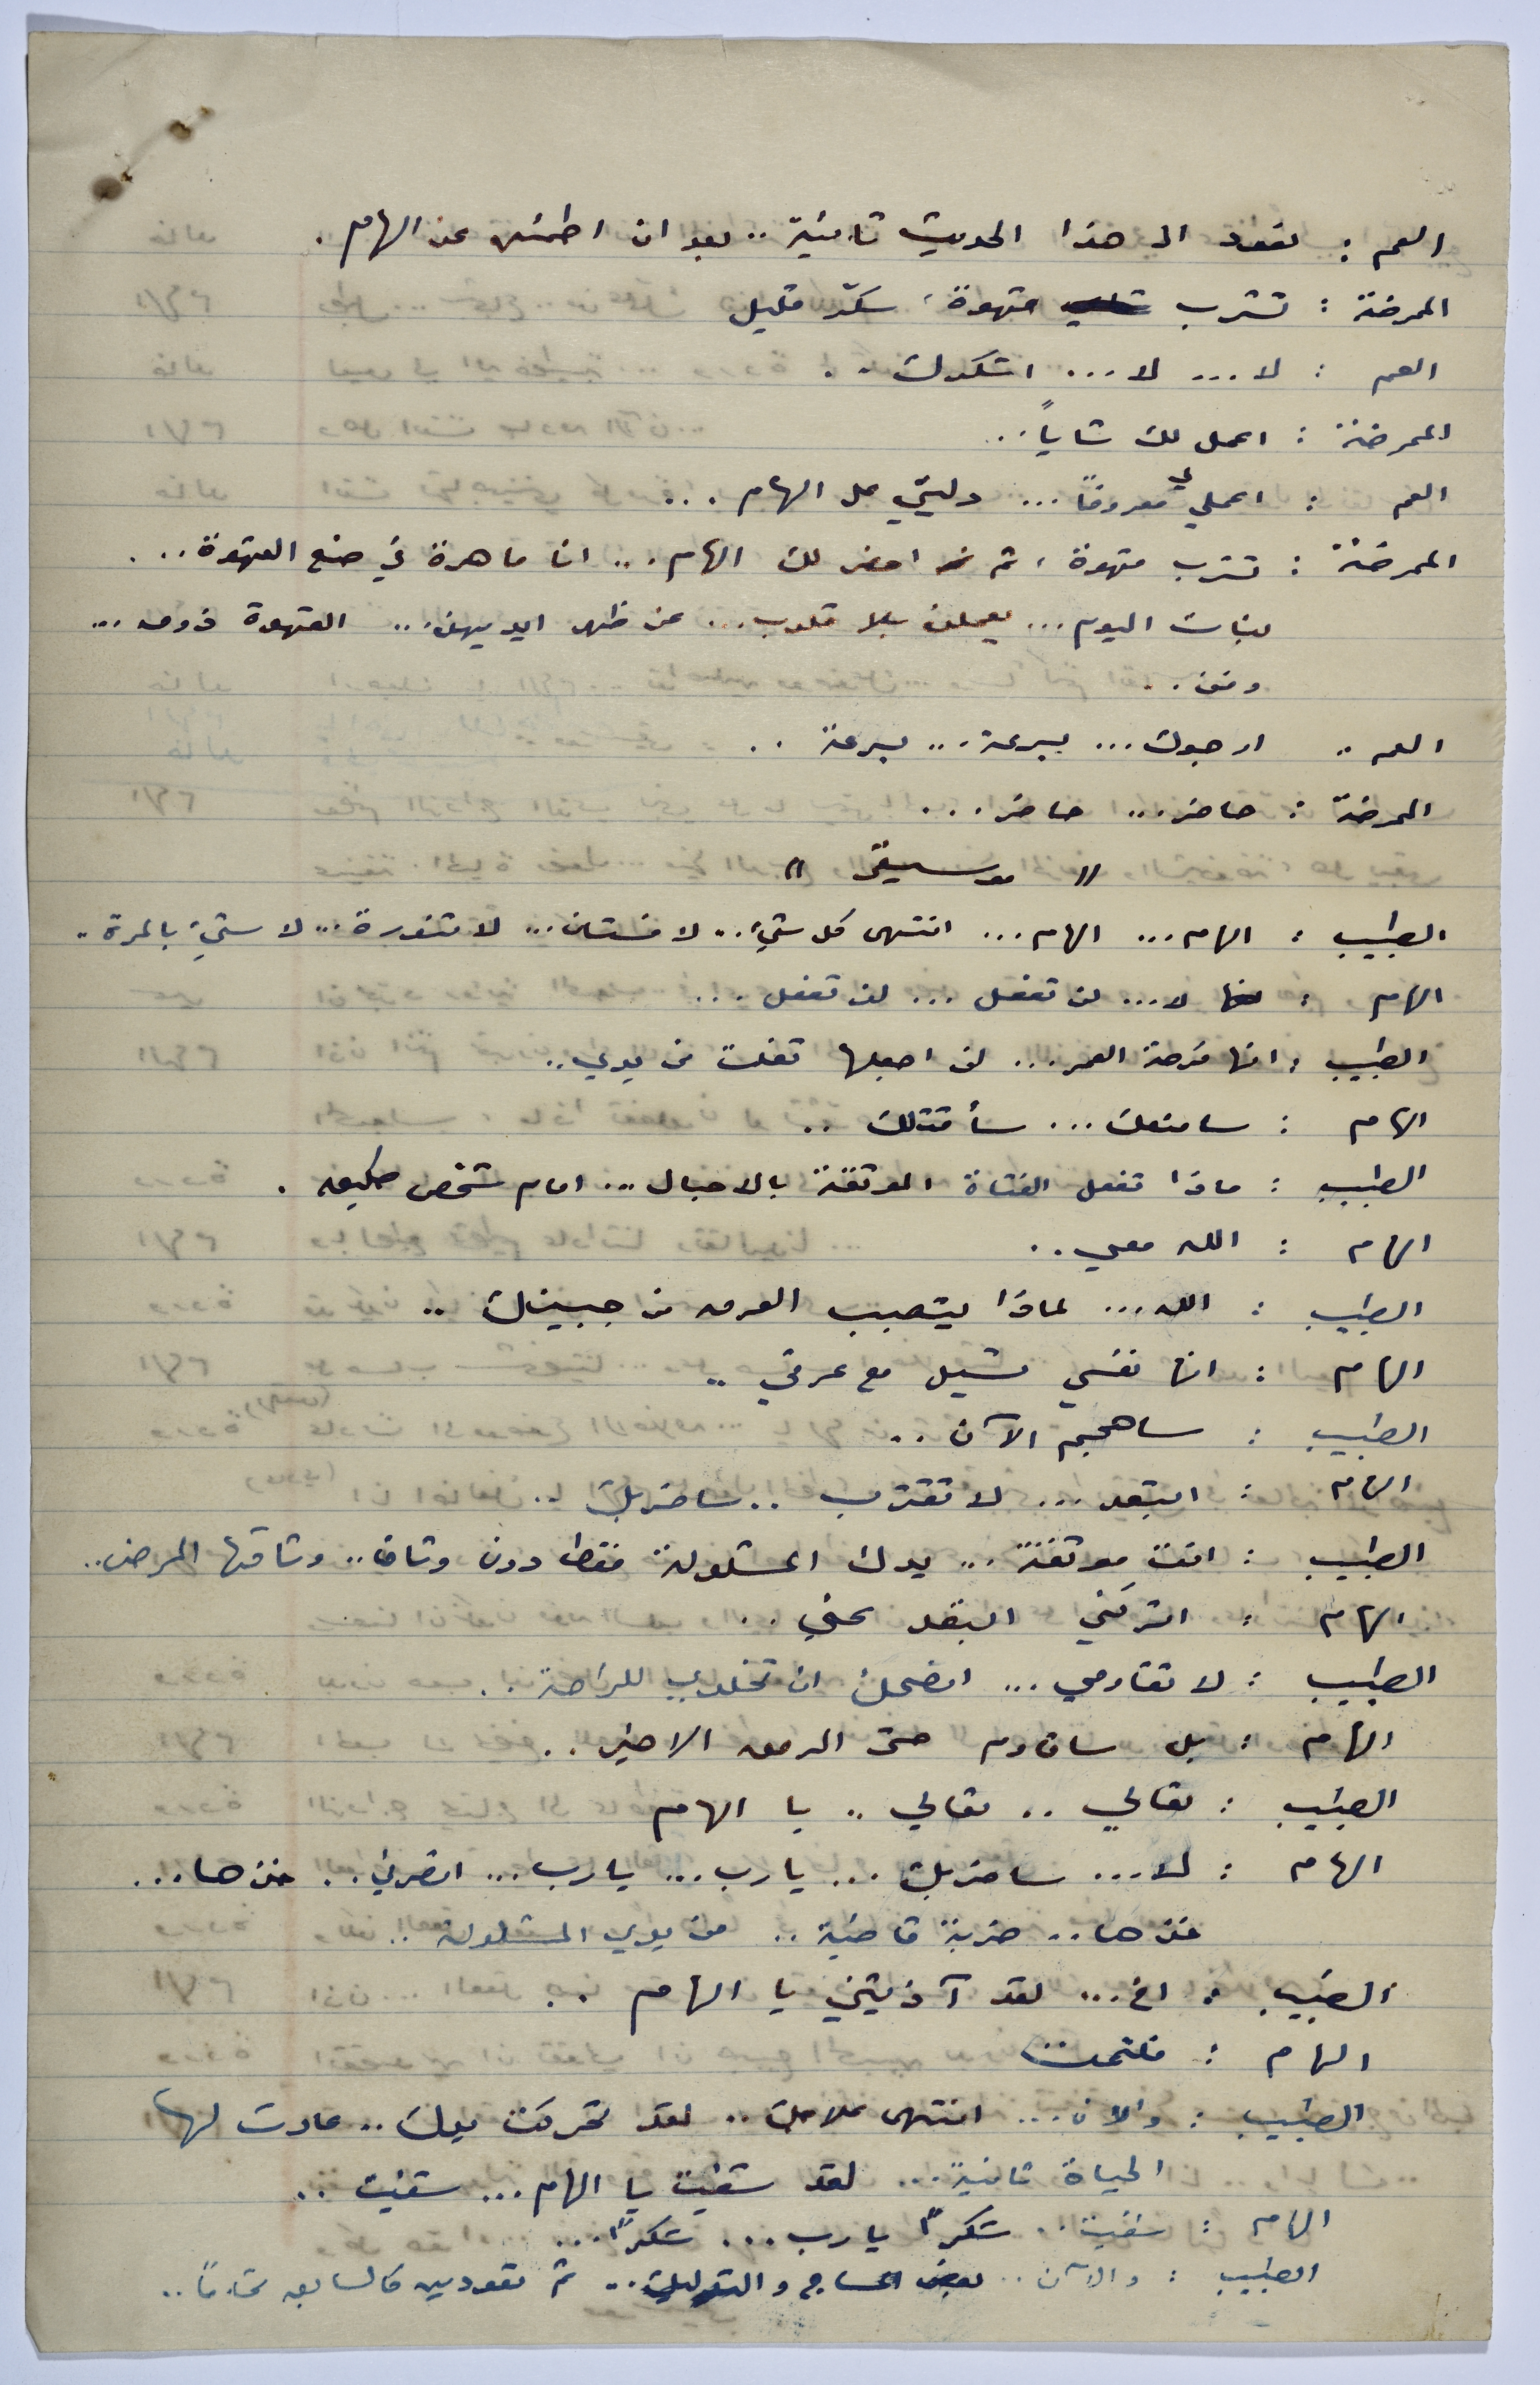 العم : نعود الى هذا الحديث ثانية .. بعد ان اطمئن عن الهام .
الممرضة : تشرب قهوة ، سكر قليل
العم : لا ... لا ... اشكرك ..
الممرضة : اعمل لك شاياً ..
العم : اعملي لي معروفاً ... دليني على الهام ...
الممرضة : تشرب قهوة ، ثم احضر لك الهام ... انا ماهرة في صنع القهوة ...
بنات اليوم ... يعملن بلا قلوب ... عن ظهر ايديهن ... القهوة ذوق ...
وفن ..
العم .. ارجوك ... بسرعة ... بسرعة ..
الممرضة : حاضر ... حاضر ...
" موسيقى "
الطبيب : الهام ... الهام ... انتهى كل شيء .. لا فستان ... لا تنورة ... لا شيء بالمرة ..
الهام : لا ... لن تفعل ... لن تفعل ...
الطبيب : انها فرصة العمر ... لن اجعلها تفلت من يدي ..
الهام : سامنعك ... سأقتلك ..
الطبيب : ماذا تفعل الفتاة الموثقة بالاحبال ... امام شخص طليق .
الهام : الله معي ..
الطبيب : الله ... لماذا يتصبب العرق من جبينك ..
الهام : انها نفسي تسيل مع عرقي ..
الطبيب : ساهجم الآن ..
الهام : ابتعد ... لا تقترب .. ساضربك ..
الطبيب : انت موثقة .. يدك المشلولة فقط دون وثاق .. وثاقها المرض ..
الهام : اتركني ابتعد عني ..
الطبيب : لا تقاومي ... افضل لك ان تخلدي للراحة ..
الهام : بل ساقاوم حتى الرمق الاخير ..
الطبيب : تعالي .. تعالي .. يا الهام
الهام : لا ... ساضربك ... يا رب ... يا رب ... انصرني .. خذها ...
خذها .. ضربة قاضية .. من يدي المشلولة ..
الطبيب : اخ ... لقد آذيتني يا الهام ..
الهام : فلتمت
الطبيب : والان ... انتهى علاجك .. لقد تحركت يدك .. عادت لها
الحياة ثانية ... لقد شفيت يا الهام ... شفيت ..
الهام : شفيت .. شكراً يا رب ... شكراً ...
الطبيب : والآن .. بعض المساج والتدليك .. ثم تعودين كالسابق تماماً ..